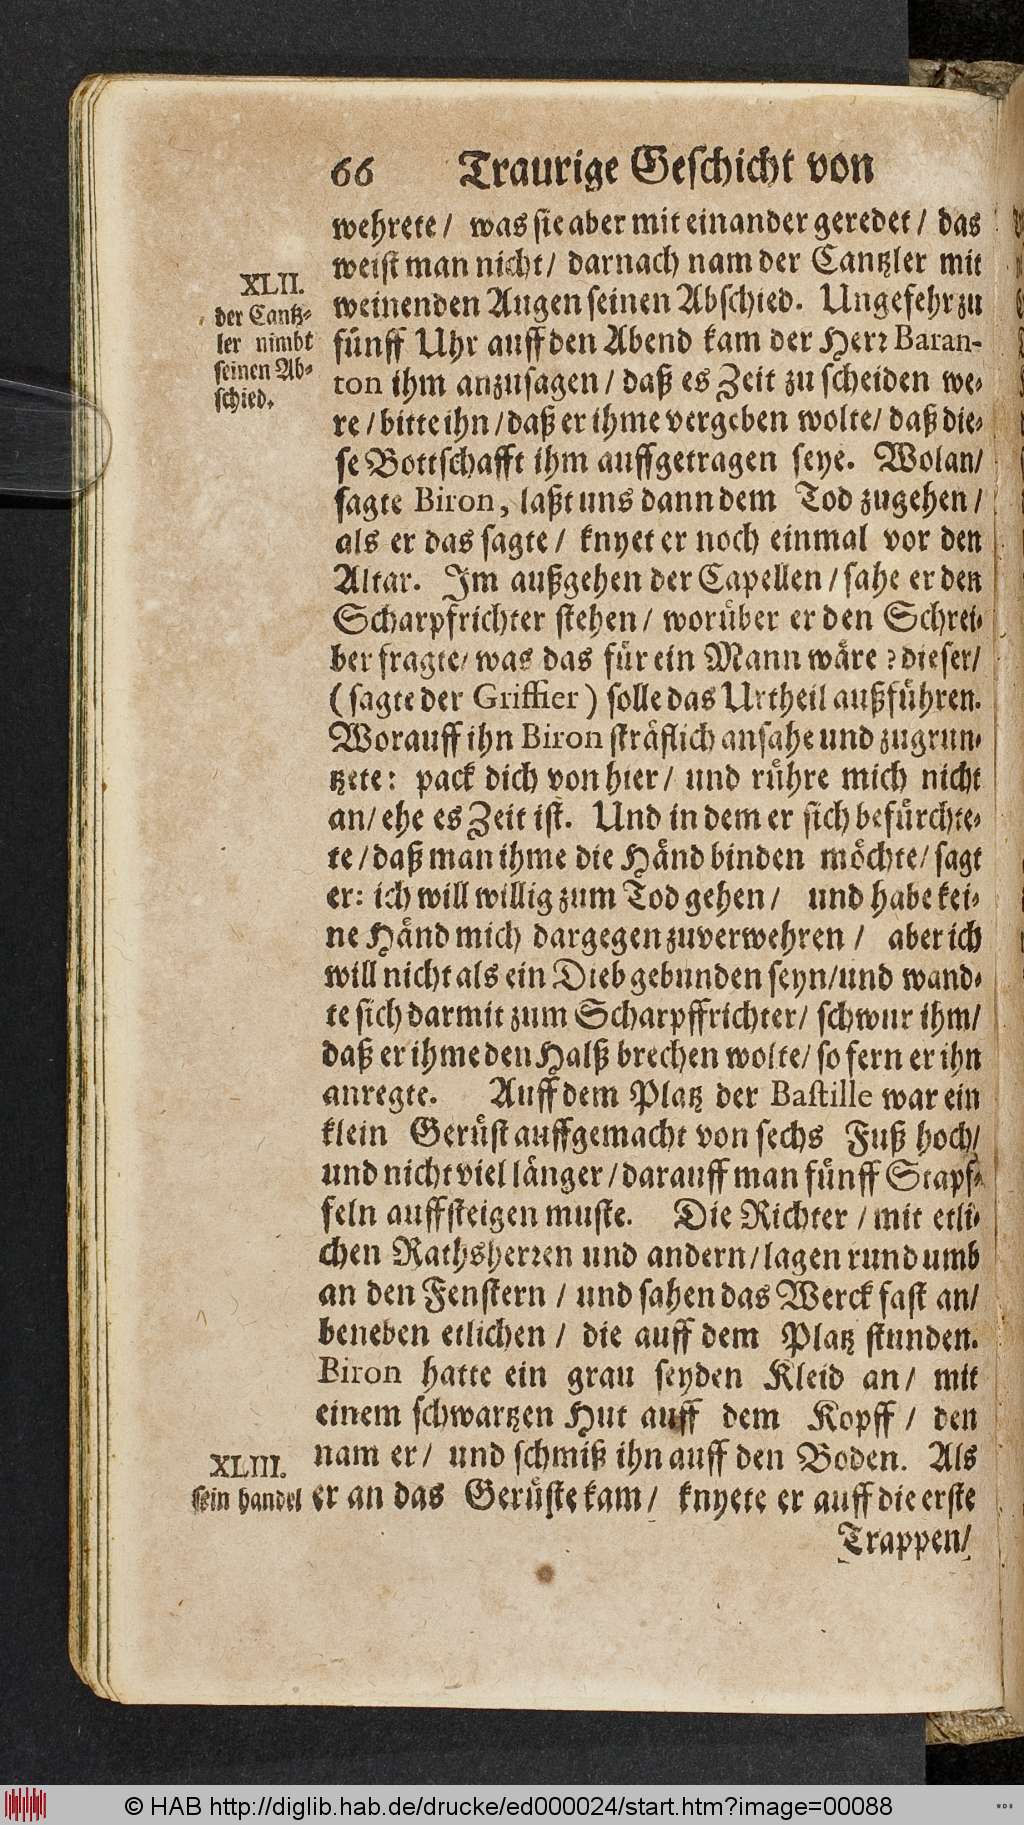 66 Traurige Geschicht von
wehrete / was sie aber mit einander geredet / das
weist man nicht / darnach nam der Cantzler mit
XLII.
der Cantz-
ler nimbt
seinen Ab-
schied.
weinenden Augen seinen Abschied. Ungefehr zu
fünff Uhr auff den Abend kam der Herr Baran-
ton ihm anzusagen / daß es Zeit zu scheiden we-
re / bitte ihn / daß er ihme vergeben wolte / daß die-
se Bottschafft ihm auffgetragen seye. Wolan /
sagte Biron, laßt uns dann dem Tod zugehen /
als er das sagte / knyet er noch einmal vor den
Altar. Im außgehen der Capellen / sahe er den
Scharpfrichter stehen / worüber er den Schrei-
ber fragte / was das für ein Mann wäre ? dieser /
( sagte der Griffier ) solle das Urtheil außführen.
Worauff ihn Biron sträflich ansahe und zugrun-
tzete : pack dich von hier / und rühre mich nicht
an / ehe es Zeit ist. Und in dem er sich befürchte-
te / daß man ihme die Händ binden möchte / sagt
er : ich will willig zum Tod gehen / und habe kei-
ne Händ mich dargegen zuverwehren / aber ich
will nicht als ein Dieb gebunden seyn / und wand-
te sich darmit zum Scharpffrichter / schwur ihm /
daß er ihme den Halß brechen wolte / so fern er ihn
anregte. Auff dem Platz der Bastille war ein
klein Gerüst auffgemacht von sechs Fuß hoch /
und nicht viel länger / darauff man fünff Stapf-
feln auffsteigen muste. Die Richter / mit etli-
chen Rathsherren und andern / lagen rund umb
an den Fenstern / und sahen das Werck fast an /
beneben etlichen / die auff dem Platz stunden.
Biron hatte ein grau seyden Kleid an / mit
einem schwartzen Hut auff dem Kopff / den
nam er / und schmiß ihn auff den Boden. Als
XLIII.
sein handel
er an das Gerüste kam / knyete er auff die erste
Trappen /
© HAB http://diglib.hab.de/drucke/ed000024/start.htm?image=00088